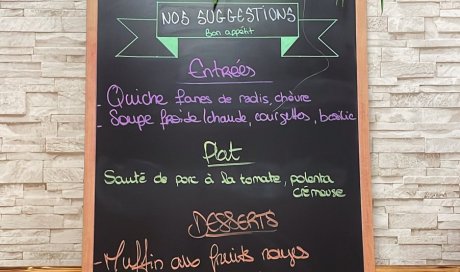 NOS SUGGESTIONS
Bon appétit
Entrées
- Quiche fanes de radis, chèvre
- Soupe froide/chaude, courgettes, basilic
Plat
Sauté de porc à la tomate, polenta
crémeuse
DESSERTS
- Muffin aux fruits rouges